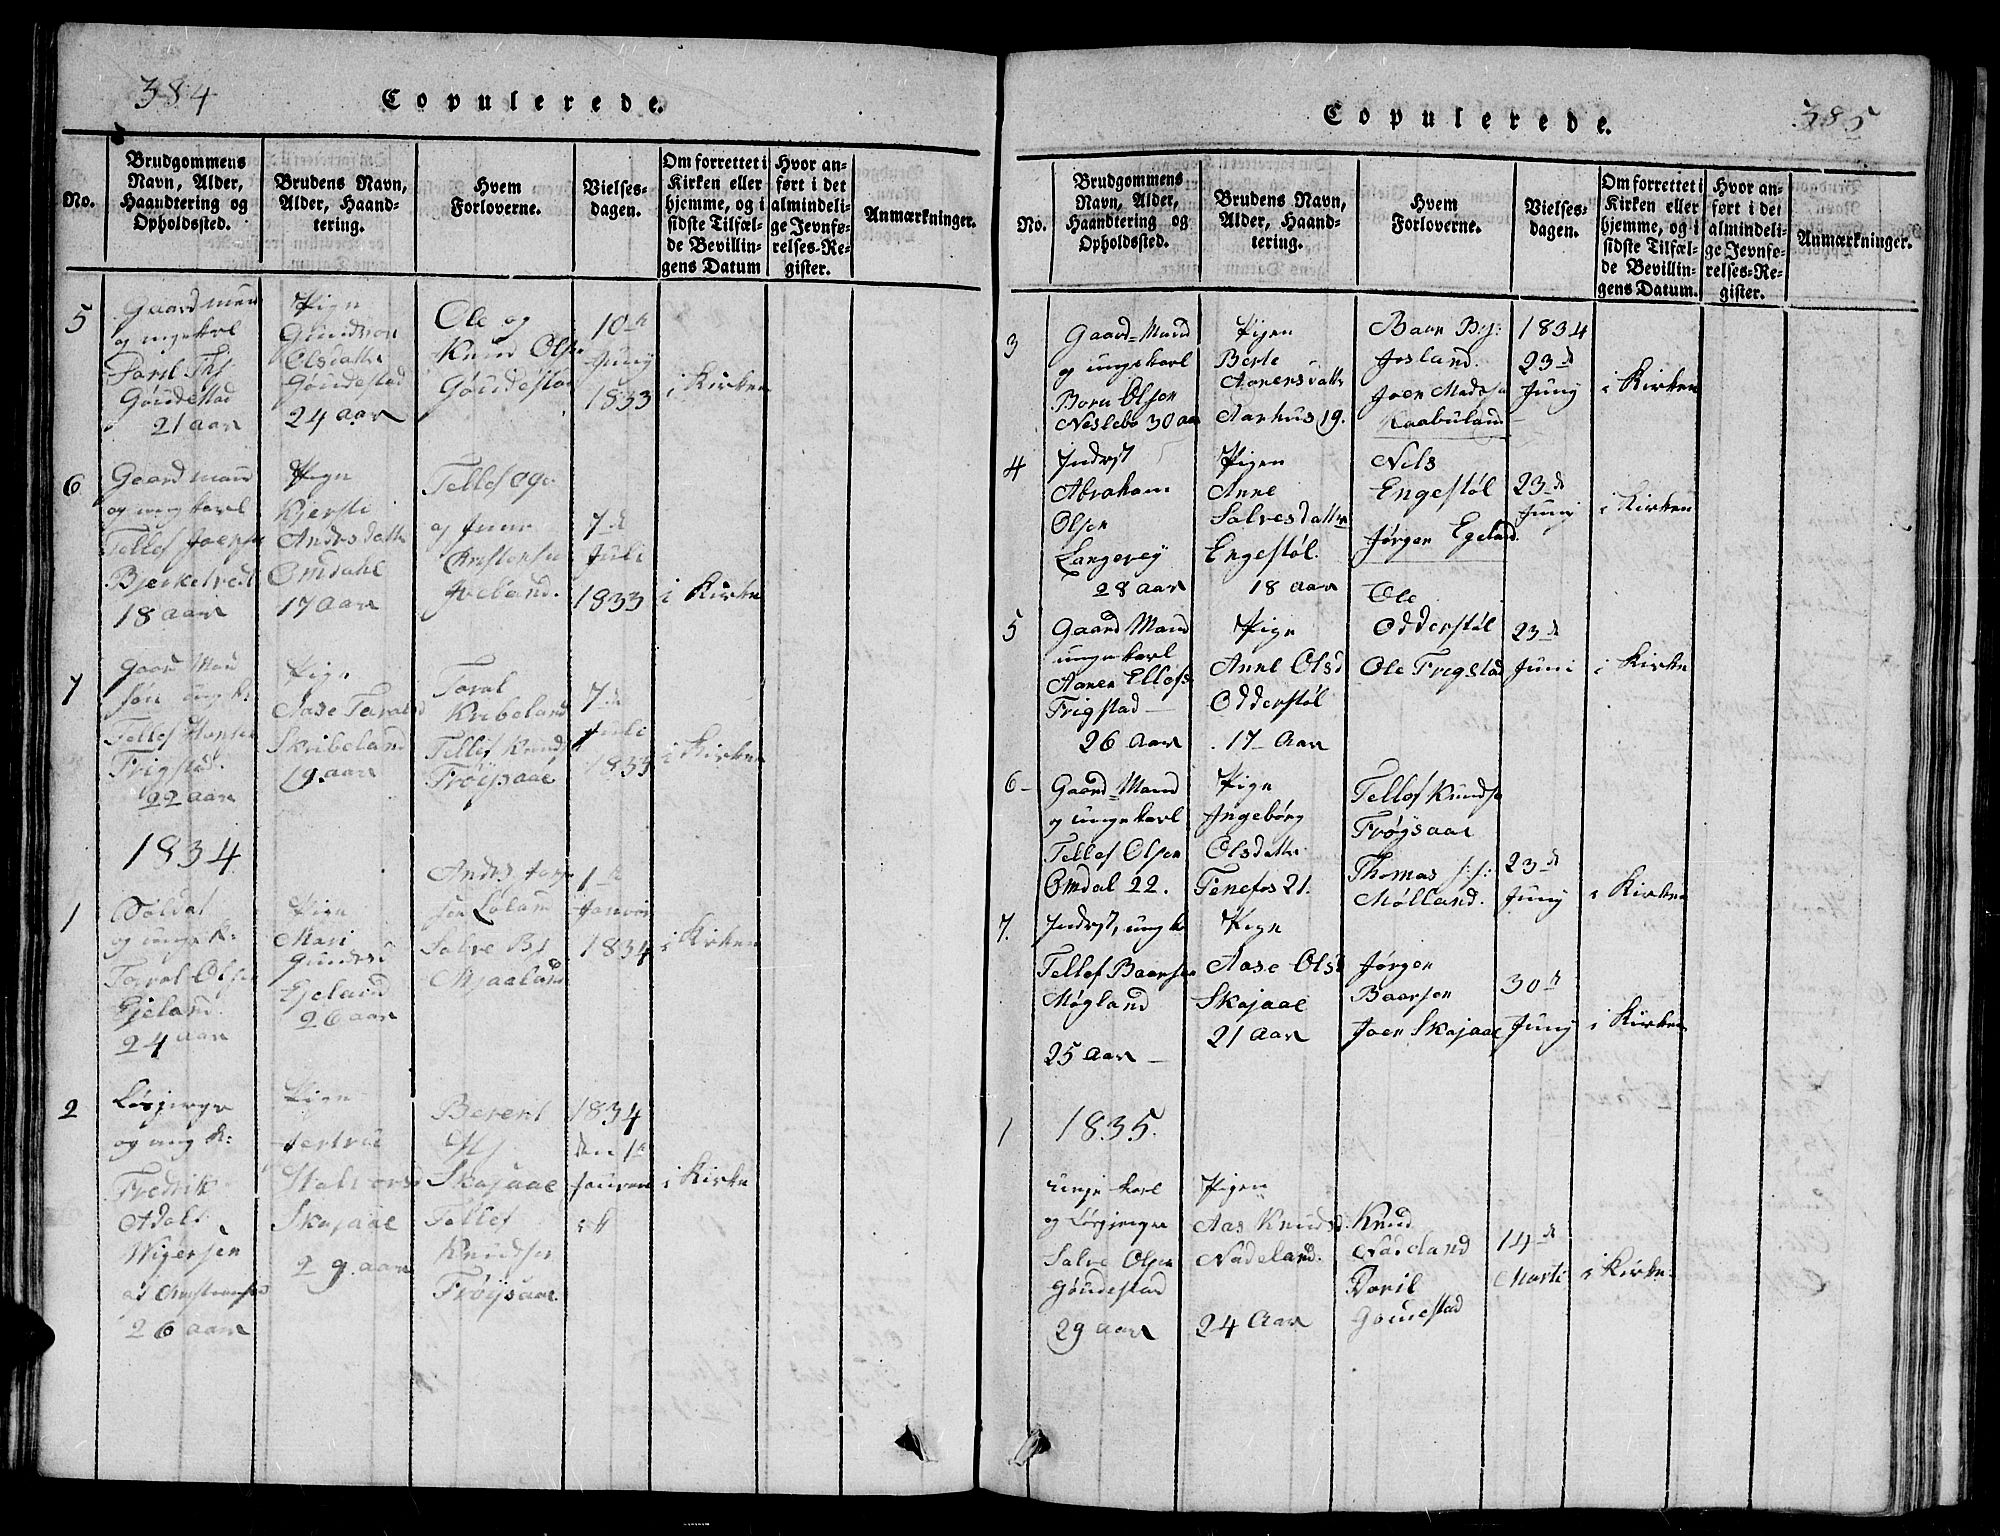 384
Copulerede.
No.
Brudgommens
Navn, Alder,
Haandtering og
Opholdssted.
Brudens Navn,
Alder, Haand-
tering.
Hvem
Forloverne.
Vielses-
dagen.
Om forrettet i
Kirken eller
hjemme, og i
sidste Tilfæl-
de Bevillin-
gens Datum
Hvor an-
ført i det
almindeli-
ge Jevnfø-
relses-Re-
gister.
Anmærkninger.
5
Gaardman
og ungekarl
Gøudestad
21 aar
Pign
Olsdattr
Gøudestad
24 aar
Ole og
Knud Olse
Gøudesta
10de
Juny
1833
i Kirken
6
Gaardmand
og ungkarl
Tellef Joense
Bjerketvedt
18 aar
Pign
Kjersti
Andrsdattr
Omdahl
17 aar
Tellef
og
Christense
7de
Juli
1833
i Kirke
7
Gaard Man
ung k:
Tellef Hanse
Frigstad.
22 aar
Pign
Aase Taralsd
Skribeland
19. aar
Taral
Kribeland
Tellef Knuds
Frøysaae
7de
Juli
1833
i Kirken
1834
1
Soldat
og unge k:
Taral Olse
Ejeland.
24 aar
Pign
Mari
Ejeland
26 aar
Andrs
Salve
Mjaaland
1te
Janvar
1834
i Kirken
2
og ung k:
Fredrik
Adolf
26 aar
Pign
Skajaae
29. aar
Berent
Skajaae
Tellef
Knudsen
Frøysaae
1834
den 1te
i Kirke
385
Copulerede.
No.
Brudgommens
Navn, Alder,
Haandtering og
Opholdssted.
Brudens Navn,
Alder, Haand-
tering.
Hvem
Forloverne.
Vielses-
dagen.
Om forrettet i
Kirken eller
hjemme, og i
sidste Tilfæl-
de Bevillin-
gens Datum.
Hvor an-
ført i det
almindeli-
ge Jevnfø-
relses-Re-
gister.
Anmærkninger.
3
Gaard=Mand
og ungekarl
Olsen
30 aar
Pigen
Berte
Aanensdattr
Aarhus 19.
Baar
Josland.
Joen Madsse
Raabuland
1834
23de
Juny
i Kirken
4
Indrst
Abraham
Olsen
Langevey
28 aar
Pigen
Anne
Salvesdattr
Engestøl.
18 aar
Nels
Engestøl
Jørgen Egeland.
23de
Juny
i Kirken
5
Gaard Mand
ungekarl
Aanen Ellefs
Frigstad
26 Aar
Pign
Anne Olsd
Odderstøl
17 Aar
Ole
Odderstøl
Ole Frigstad
23de
Juni
i Kirke
6
Gaard=Mand
og ungekarl
Tellef Olsen
Omdal 22.
Pign
Ingebørg
Olsdattr
Tenefos 21.
Tellef Knudse
Frøysaae
Thomas
Mølland.
23de
Juny
i Kirken
7.
Indrst, ung k
Tellef Baarsen
Møgland
25 Aar
Pign
Aase Olsd
Skajaae
21 Aar
Jørgen
Baarsen
Joen Skajaae
30te
Juny
i Kirken
1835.
1
unge karl
og
Salve Olsen
Gøudestad
29 Aar
Pigen
Aas Knudsd
Nadeland.
24 Aar
Knud
Nadeland
Goudestad
14de
Marti
i Kirke